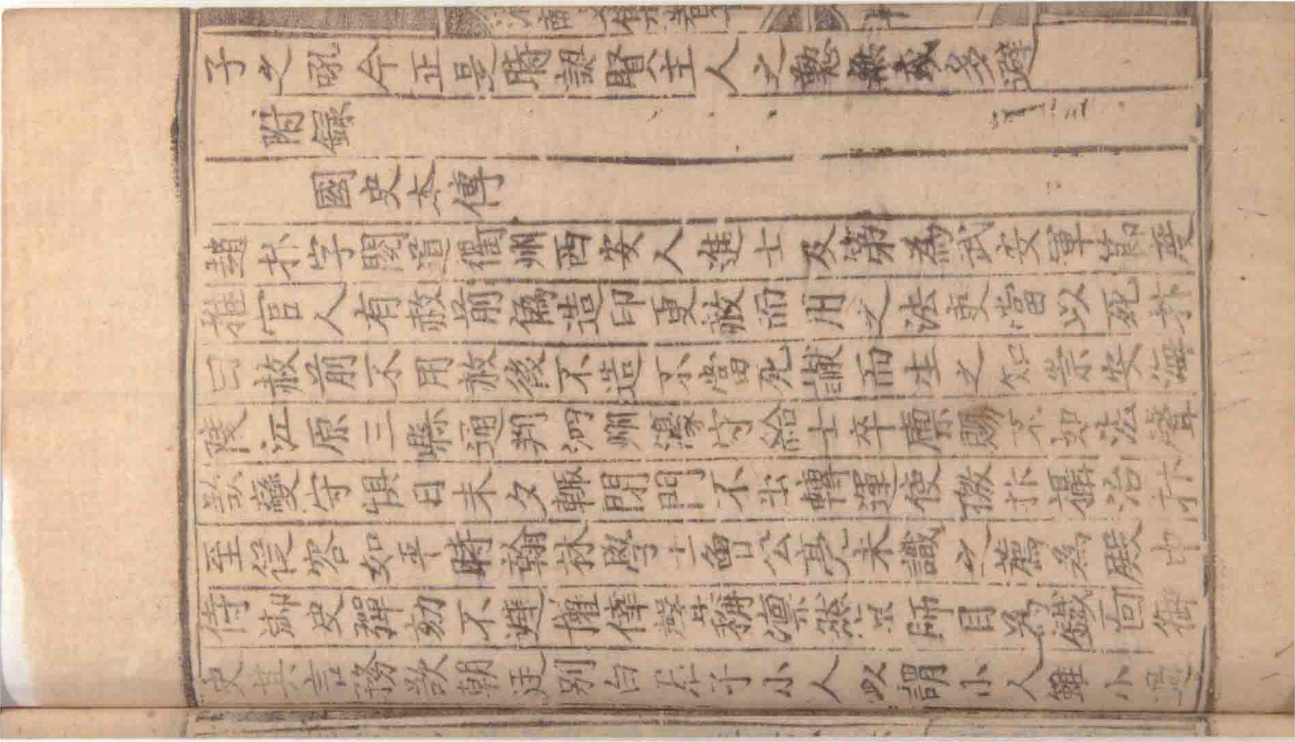 子之吼今正是時認賢主人之懃無或多避
附錄
國史夲傳
趙抃字閱道衢州西安人進士及第為武安軍節度
推官人有赦前偽造印更赦而用之法吏當以死抃
曰赦前不用赦後不造不當死讞而生之知崇安海
陵江原三縣通判泗州濠守給士卒廩賜不如法聲
欲變守惧日未夕輒閉門不出轉運使檄抃攝治抃
至從容如平時翰林學士曾公亮未識之薦為殿中
侍御史彈劾不避權倖聲稱凛然京師目為鐵面御
史其言務欲朝廷別白君子小人以謂小人雖小過